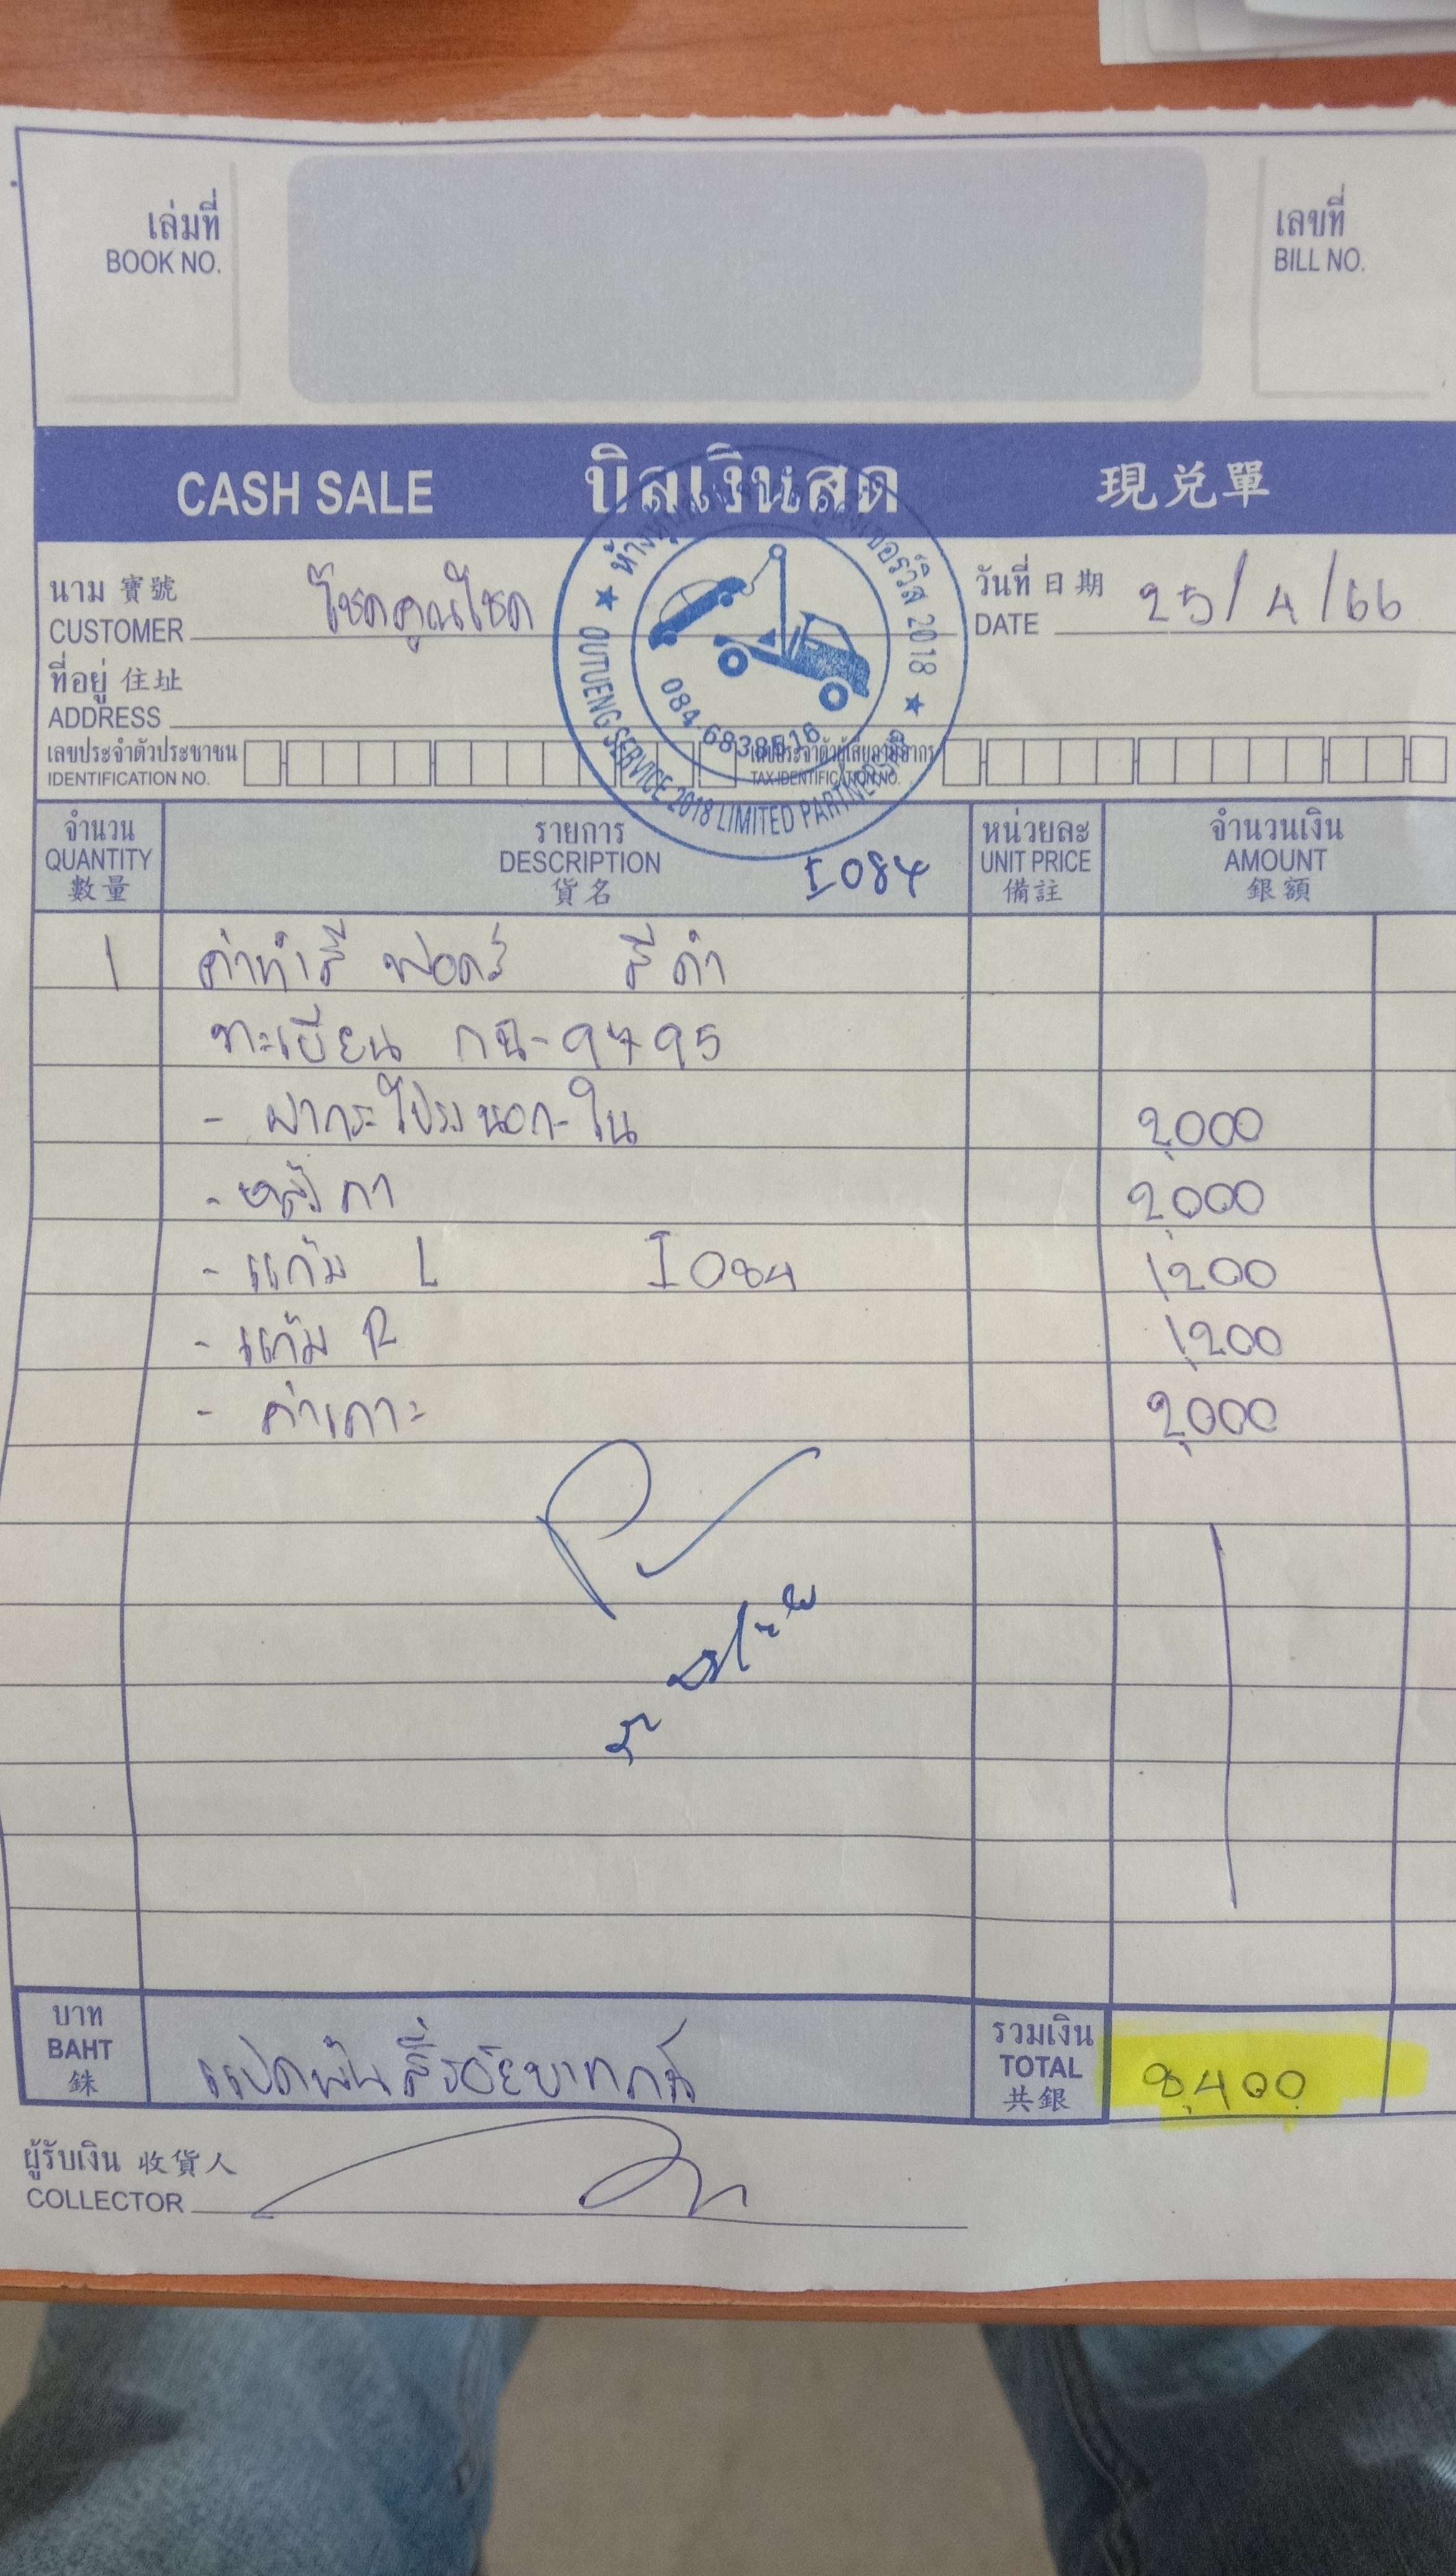 เล่มที่
BOOK NO.
เลขที่
BILL NO.
CASH SALE บิลเงินสด 現兑單
นาม 寶號
CUSTOMER โชคคูณโชค
วันที่ 日期
DATE 25/4/66
ที่อยู่ 住址
ADDRESS
เลขประจำตัวประชาชน
IDENTIFICATION NO.
เลขประจำตัวผู้เสียภาษีอากร
TAX IDENTIFICATION NO.
เซอร์วิส 2018
OUTUENG SERVICE 2018 LIMITED PARTNERSHIP
จำนวน
QUANTITY
數量
รายการ
DESCRIPTION
貨名
I084
หน่วยละ
UNIT PRICE
備註
จำนวนเงิน
AMOUNT
銀額
1 ค่าทำสี ฟอดร์ สีดำ
ทะเบียน กฉ-9795
- ฝากระโปรงนอก-ใน 2,000
- หลังคา 2,000
- แก้ม L I084 1,200
- แก้ม R 1,200
- ค่าเคาะ 2,000
บาท
BAHT
銖
แปดพันสี่ร้อยบาทถ้วน
รวมเงิน
TOTAL
共銀
8,400
ผู้รับเงิน 收貨人
COLLECTOR